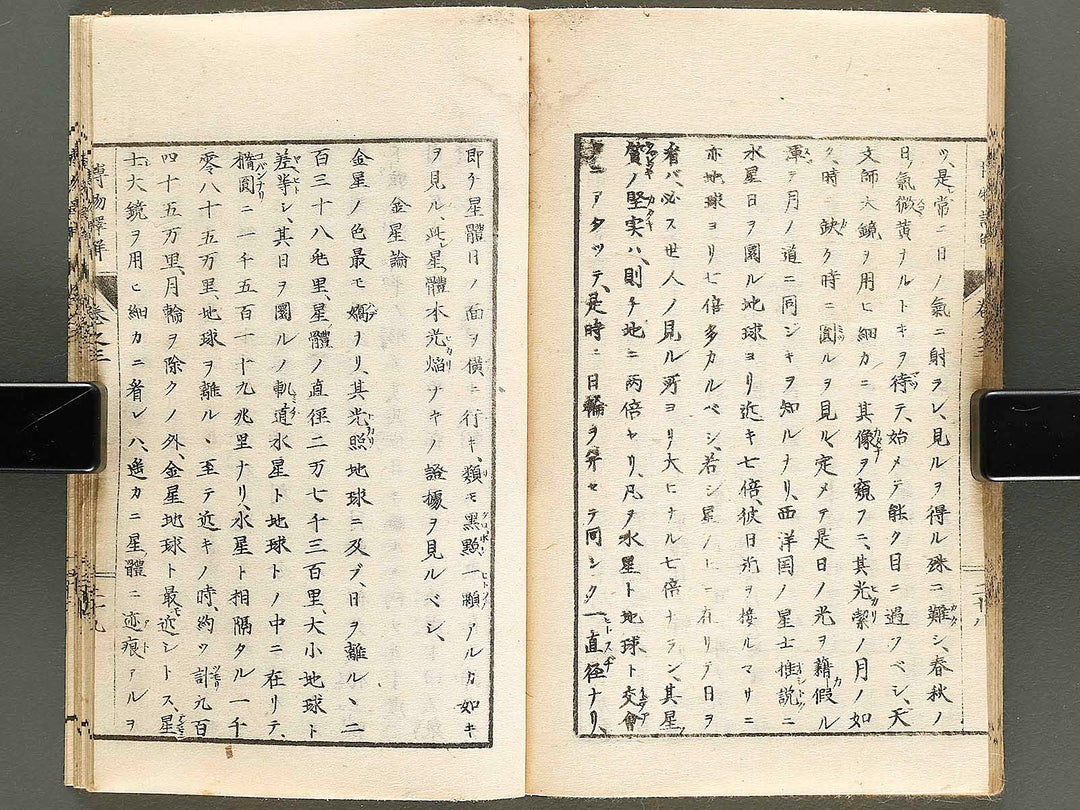 ツ、是常ニ日ノ氣ニ射ヲレ、見ルヲ得ル殊ニ難シ、春秋ノ
日ノ氣微黄ナルトキヲ待テ、始メテ能ク目ニ過ツベシ、天
文師大鏡ヲ用ヒ細カニ其像ヲ窺フニ、其光縈ノ月ノ如
ク、時ニ缺ク時ニ圓ルヲ見ル、定メテ是日ノ光ヲ藉假ル
ヿ月ノ道ニ同ジキヲ知ルナリ、西洋国ノ星士惟説ニ
水星日ヲ圜ル地球ヨリ近キ七倍、彼日光ヲ接ルマサニ
亦地球ヨリ七倍多カルベシ、若シ星ノ上ニ在リテ日ヲ
看バ、必ス世人ノ見ル所ヨリ大ヒナル七倍ナラン、其星ノ
質ノ堅実ハ、則チ地ニ両倍セリ、凡ヲ水星ト地球ト交會
ニアタツテ、是時ニ日輪ヲ弁セテ同シク一直径ナリ、
即チ星體日ノ面ヲ横ニ行キ、類モ黒點一顆アルカ如キ
ヲ見ル、此星體本光焔ナキノ證據ヲ見ルベシ、
金星論
金星ノ色最モ嬌ナリ、其光照地球ニ及ブ、日ヲ離ルヽ二
百三十八兆里、星體ノ直徑二万七千三百里、大小地球ト
差挙シ、其日ヲ圜ルノ軌道水星ト地球トノ中ニ在リテ、
橢圓ニ一千五百一十九兆里ナリ、水星ト相隔タル一千
零八十五万里、地球ヲ離ルヽ至テ近キノ時、約ソ計九百
四十五万里、月輪ヲ除クノ外、金星地球ト最モ近シトス、星
士大鏡ヲ用ヒ細カニ看レハ、遙カニ星體ニ迹痕アルヲ
博物譯解
巻之三
二十九
巻之三
二十八